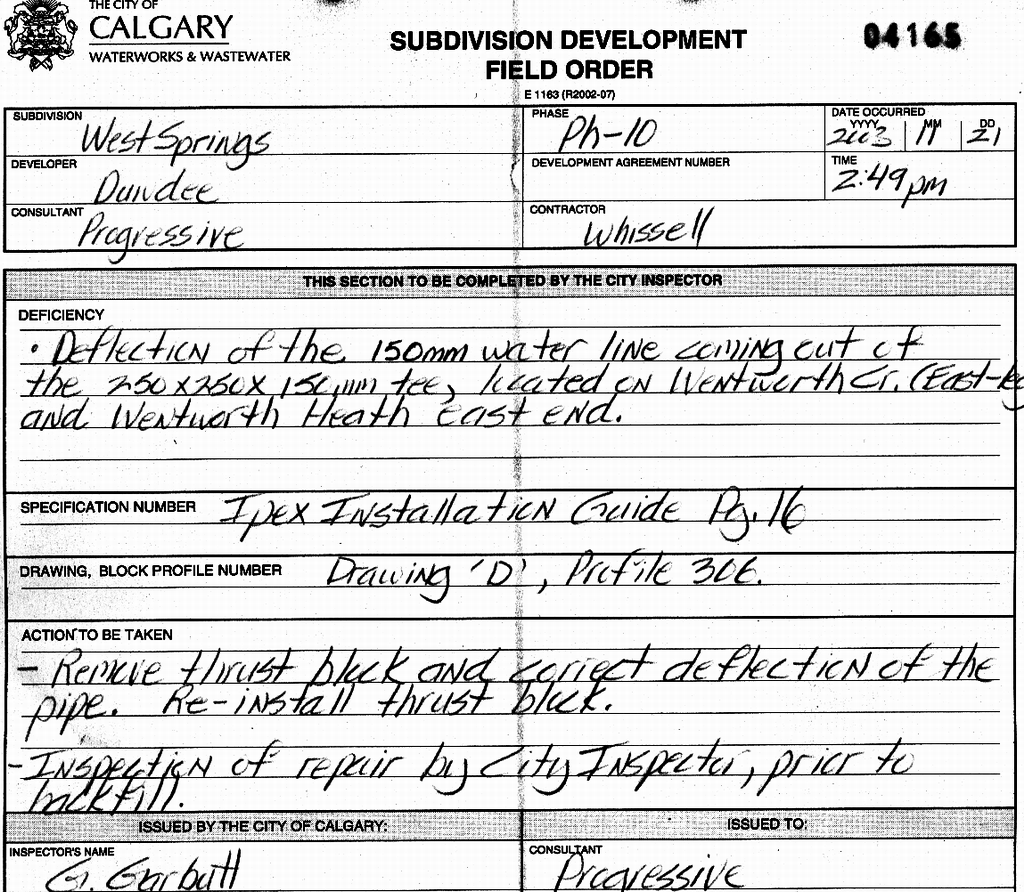 THE CITY OF
CALGARY
WATERWORKS & WASTEWATER
SUBDIVISION DEVELOPMENT
FIELD ORDER
04165
E 1163 (R2002-07)
SUBDIVISION
West Springs
PHASE
Ph-10
DATE OCCURRED
YYYY MM DD
2003 11 21
DEVELOPER
Dundee
DEVELOPMENT AGREEMENT NUMBER
TIME
2:49 pm
CONSULTANT
Progressive
CONTRACTOR
Whissell
THIS SECTION TO BE COMPLETED BY THE CITY INSPECTOR
DEFICIENCY
• Deflection of the 150mm water line coming out of
the 250x250x150mm tee, located on Wentworth Cr. (East-leg
and Wentworth Heath east end.
SPECIFICATION NUMBER Ipex Installation Guide Pg. 16
DRAWING, BLOCK PROFILE NUMBER Drawing 'D', Profile 306.
ACTION TO BE TAKEN
- Remove thrust block and correct deflection of the
pipe. Re-install thrust block.
- Inspection of repair by City Inspector, prior to
backfill.
ISSUED BY THE CITY OF CALGARY:
ISSUED TO:
INSPECTOR'S NAME
G. Garbutt
CONSULTANT
Progressive